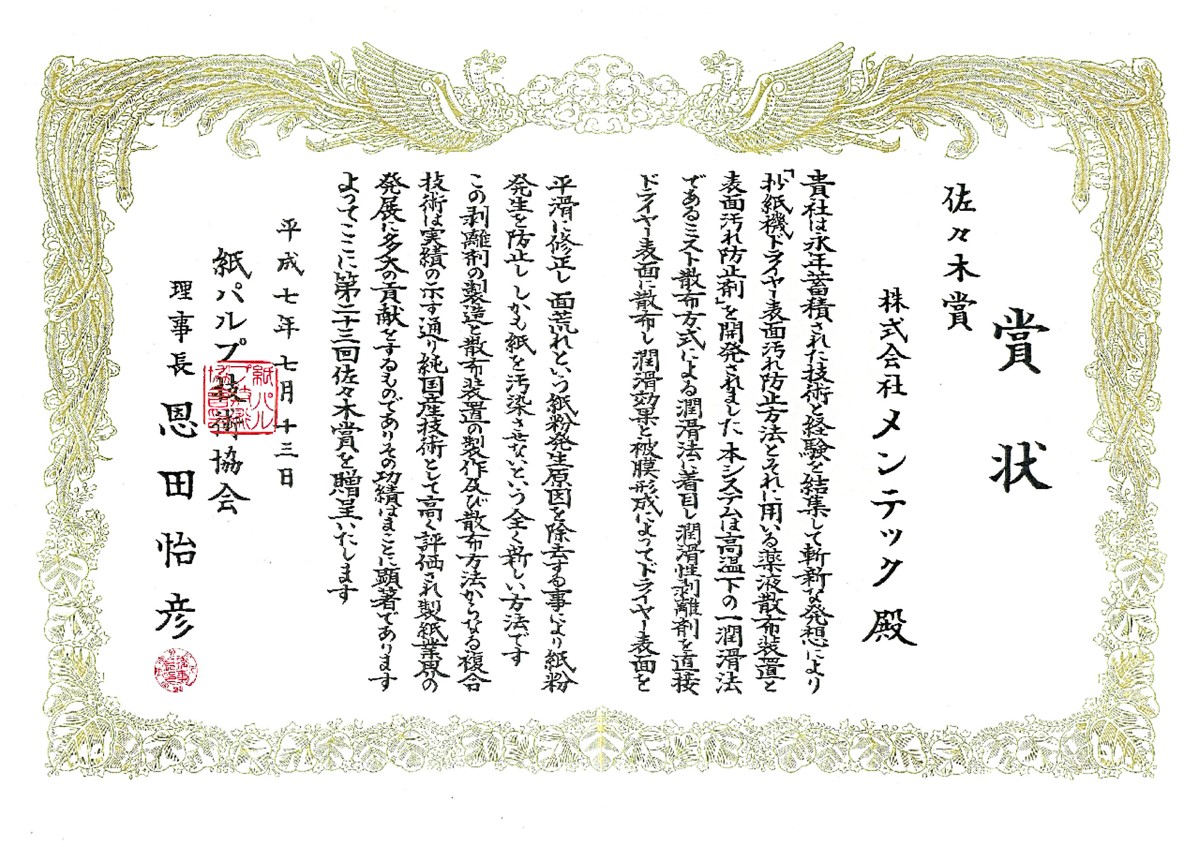 賞状
佐々木賞
株式会社メンテック殿
貴社は永年蓄積された技術と経験を結集して斬新な発想により
「抄紙機ドライヤー表面汚れ防止方法とそれに用いる薬液散布装置と
表面汚れ防止剤」を開発されました 本システムは高温下の一潤滑法
であるミスト散布方式による潤滑法に着目し潤滑性剥離剤を直接
ドライヤー表面に散布し潤滑効果と被膜形成によってドライヤー表面を
平滑に修正し 面荒れという紙粉発生原因を除去する事により紙粉
発生を防止し しかも紙を汚染させないという全く新しい方法です
この剥離剤の製造と散布装置の製作及び散布方法からなる複合
技術は実績の示す通り純国産技術として高く評価され製紙業界の
発展に多大の貢献をするものでありその功績はまことに顕著であります
よってここに第二十三回佐々木賞を贈呈いたします
平成七年七月十三日
紙パルプ技術協会
理事長 恩田怡彦